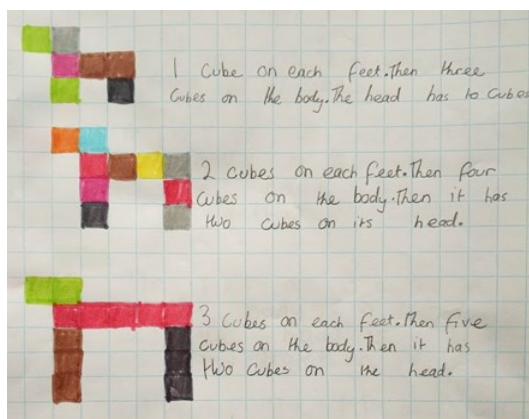 1 cube on each feet.Then three
cubes on the body.The head has to cubes
2 cubes on each feet.Then four
cubes on the body.Then it has
two cubes on its head.
3 cubes on each feet.Then five
cubes on the body.Then it has
two cubes on the head.